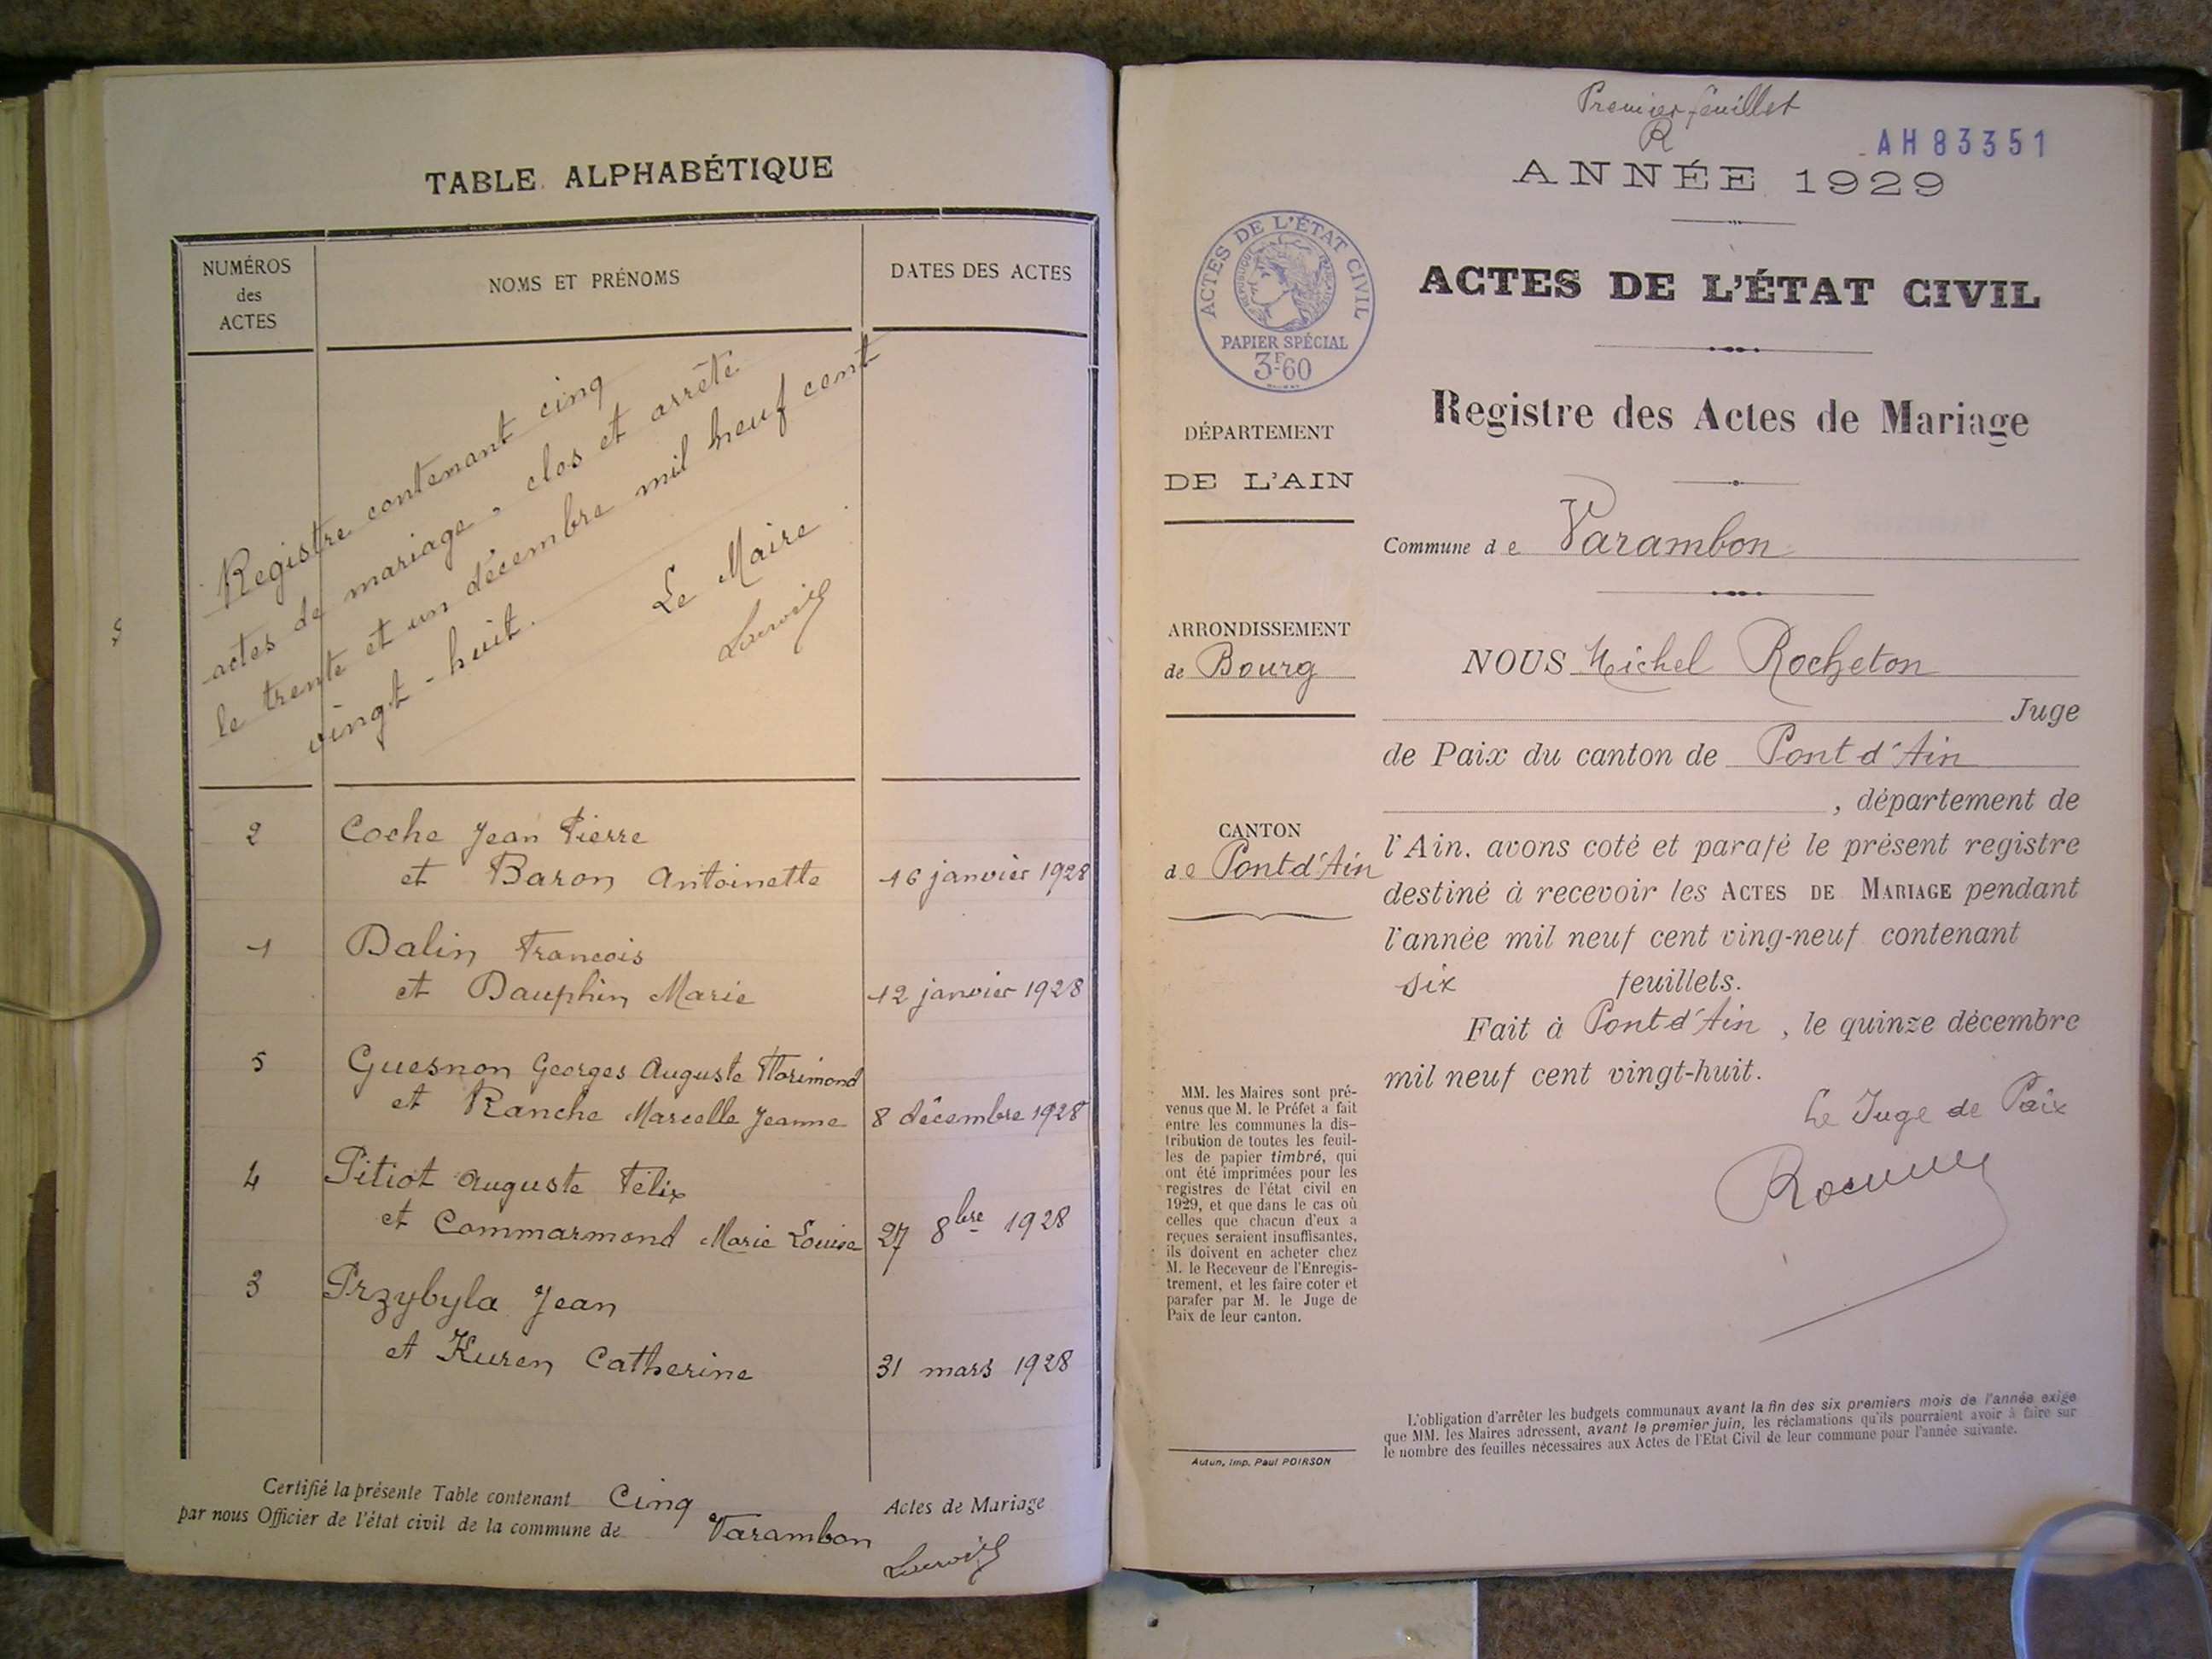 TABLE ALPHABÉTIQUE
NUMÉROS
des
ACTES
NOMS ET PRÉNOMS
DATES DES ACTES
Registre contenant cinq
actes de mariage, clos et arrêté
le trente et un décembre mil neuf cent
vingt-huit.
Le Maire
2 Coche Jean Pierre
et Baron Antoinette 16 janvier 1928
1 Dalin Francois
et Dauphin Marie 12 janvier 1928
5 Guesnon Georges Auguste Florimond
et Ranche Marcelle Jeanne 8 décembre 1928
4 Pitiot Auguste Felix
et Commarmond Marie Louise 27 8bre 1928
3 Przybyla Jean
et Kuren Catherine 31 mars 1928
Certifié la présente Table contenant Cinq Actes de Mariage
par nous Officier de l'état civil de la commune de Varambon
Premier feuillet
R
AH83351
ANNÉE 1929
ACTES DE L'ÉTAT CIVIL
RÉPUBLIQUE FRANÇAISE
PAPIER SPÉCIAL
3F60
ACTES DE L'ÉTAT CIVIL
Registre des Actes de Mariage
DÉPARTEMENT
DE L'AIN
Commune de Varambon
ARRONDISSEMENT
de Bourg
CANTON
de Pont d'Ain
NOUS Michel Rocheton
Juge
de Paix du canton de Pont d'Ain
, département de
l'Ain. avons coté et parafé le présent registre
destiné à recevoir les ACTES DE MARIAGE pendant
l'année mil neuf cent ving-neuf contenant
six feuillets.
Fait à Pont d'Ain, le quinze décembre
mil neuf cent vingt-huit.
Le Juge de Paix
MM. les Maires sont pré-
venus que M. le Préfet a fait
entre les communes la dis-
tribution de toutes les feuil-
les de papier timbré, qui
ont été imprimées pour les
registres de l'état civil en
1929, et que dans le cas où
celles que chacun d'eux a
reçues seraient insuffisantes,
ils doivent en acheter chez
M. le Receveur de l'Enregis-
trement, et les faire coter et
parafer par M. le Juge de
Paix de leur canton.
Autun, Imp. Paul POIRSON
L'obligation d'arrêter les budgets communaux avant la fin des six premiers mois de l'année exige
que MM. les Maires adressent, avant le premier juin, les réclamations qu'ils pourraient avoir à faire sur
le nombre des feuilles nécessaires aux Actes de l'Etat Civil de leur commune pour l'année suivante.